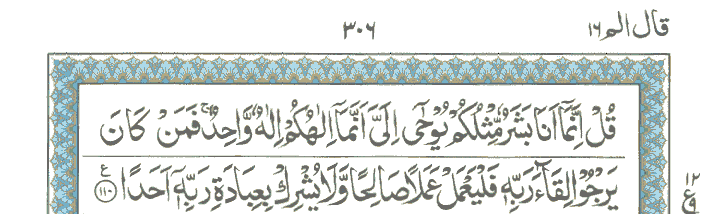 قال الم ١٦ ٣٠٦
قُلْ اِنَّمَآ اَنَا بَشَرٌ مِّثْلُكُمْ يُوْحٰٓى اِلَىَّ اَنَّمَآ اِلٰهُكُمْ اِلٰهٌ وَّاحِدٌ ۚ فَمَنْ كَانَ
يَرْجُوْا لِقَآءَ رَبِّهٖ فَلْيَعْمَلْ عَمَلًا صَالِحًا وَّلَا يُشْرِكْ بِعِبَادَةِ رَبِّهٖٓ اَحَدًا ۧ ﴿١١٠﴾
١٢
ع